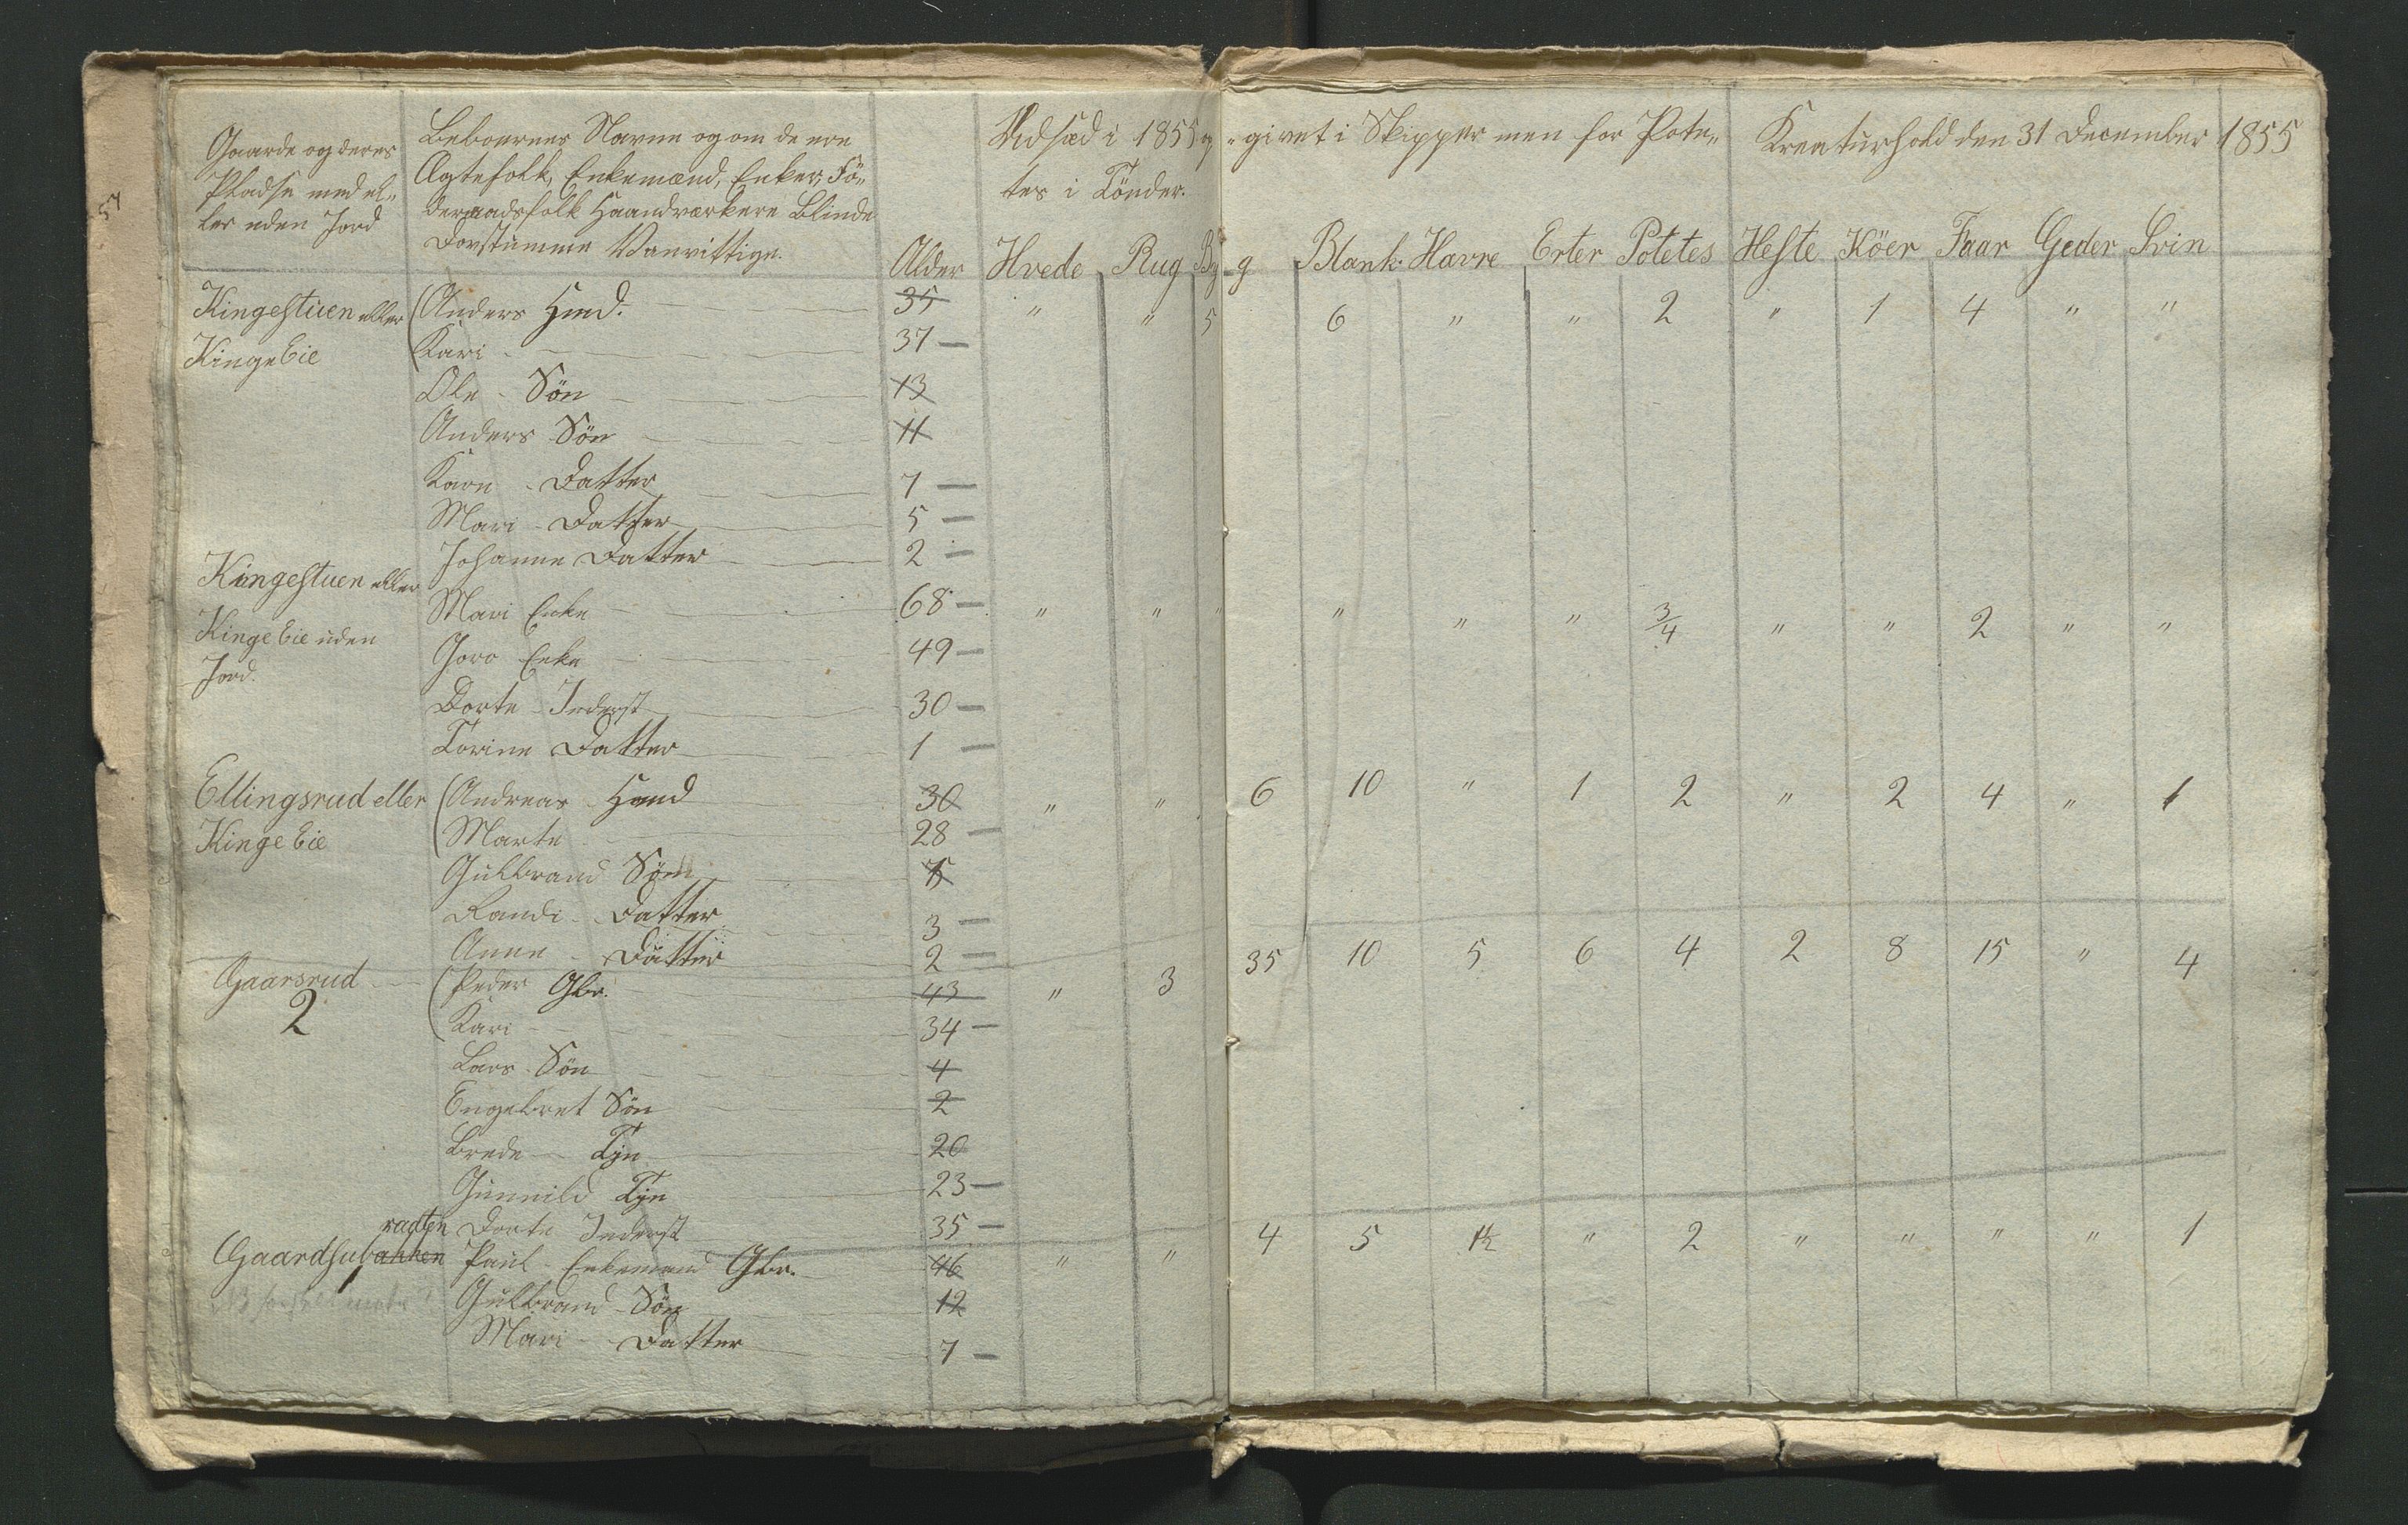 Gaarde og deres
Pladse med el-
ler uden Jord
Beboernes Navne og om de ere
Ægtefolk, Enkemænd, Enker, Fö-
deraadsfolk Haandværkere Blinde
Dovstumme Vanvittige.
Alder
Udsæd i 1855 op
-givet i Skipper men for Pote-
tes i Tönder.
Kreaturhold den 31 December 1855
Hvede Rug By-g Blank. Havre Erter Potetes Heste Köer Faar Geder Svin
Kingestuen eller (Anders Hmd. 35 " " 5 6 " " 2 " 1 4 " "
Kinge Eie (Kari 37 —
Ole - Sön 13
Anders Sön 11
Karn - Datter 7 —
Mari - Datter 5 —
Johanne Datter 2 —
Kingestuen eller
Mari Enke 68 — " " " " " " 3/4 " " 2 " "
Kinge Eie uden
Goro Enke 49 —
Jord.
Dorte - Inderst 30 —
Torine Datter 1 —
Ellingsrud eller (Andreas - Hmd 30 " " 6 10 " 1 2 " 2 4 " 1
Kinge Eie (Marte 28 —
Gulbrand Sön
Randi - Datter 3 —
Anne - Datter 2 —
Gaarsrud (Peder Gbr. 43 " 3 35 10 5 6 4 2 8 15 " 4
2 (Kari 34 —
Lars - Sön 4
Engebret Sön 2
Brede Tjn 20
Gunnild Tjn 23 —
Dorte Inderst 35 —
Paul - Enkemand Gbr. 46 " " 4 5 1½ " 2 " " " " 1
Gulbrand - Sön 12
Mari - Datter 7 —